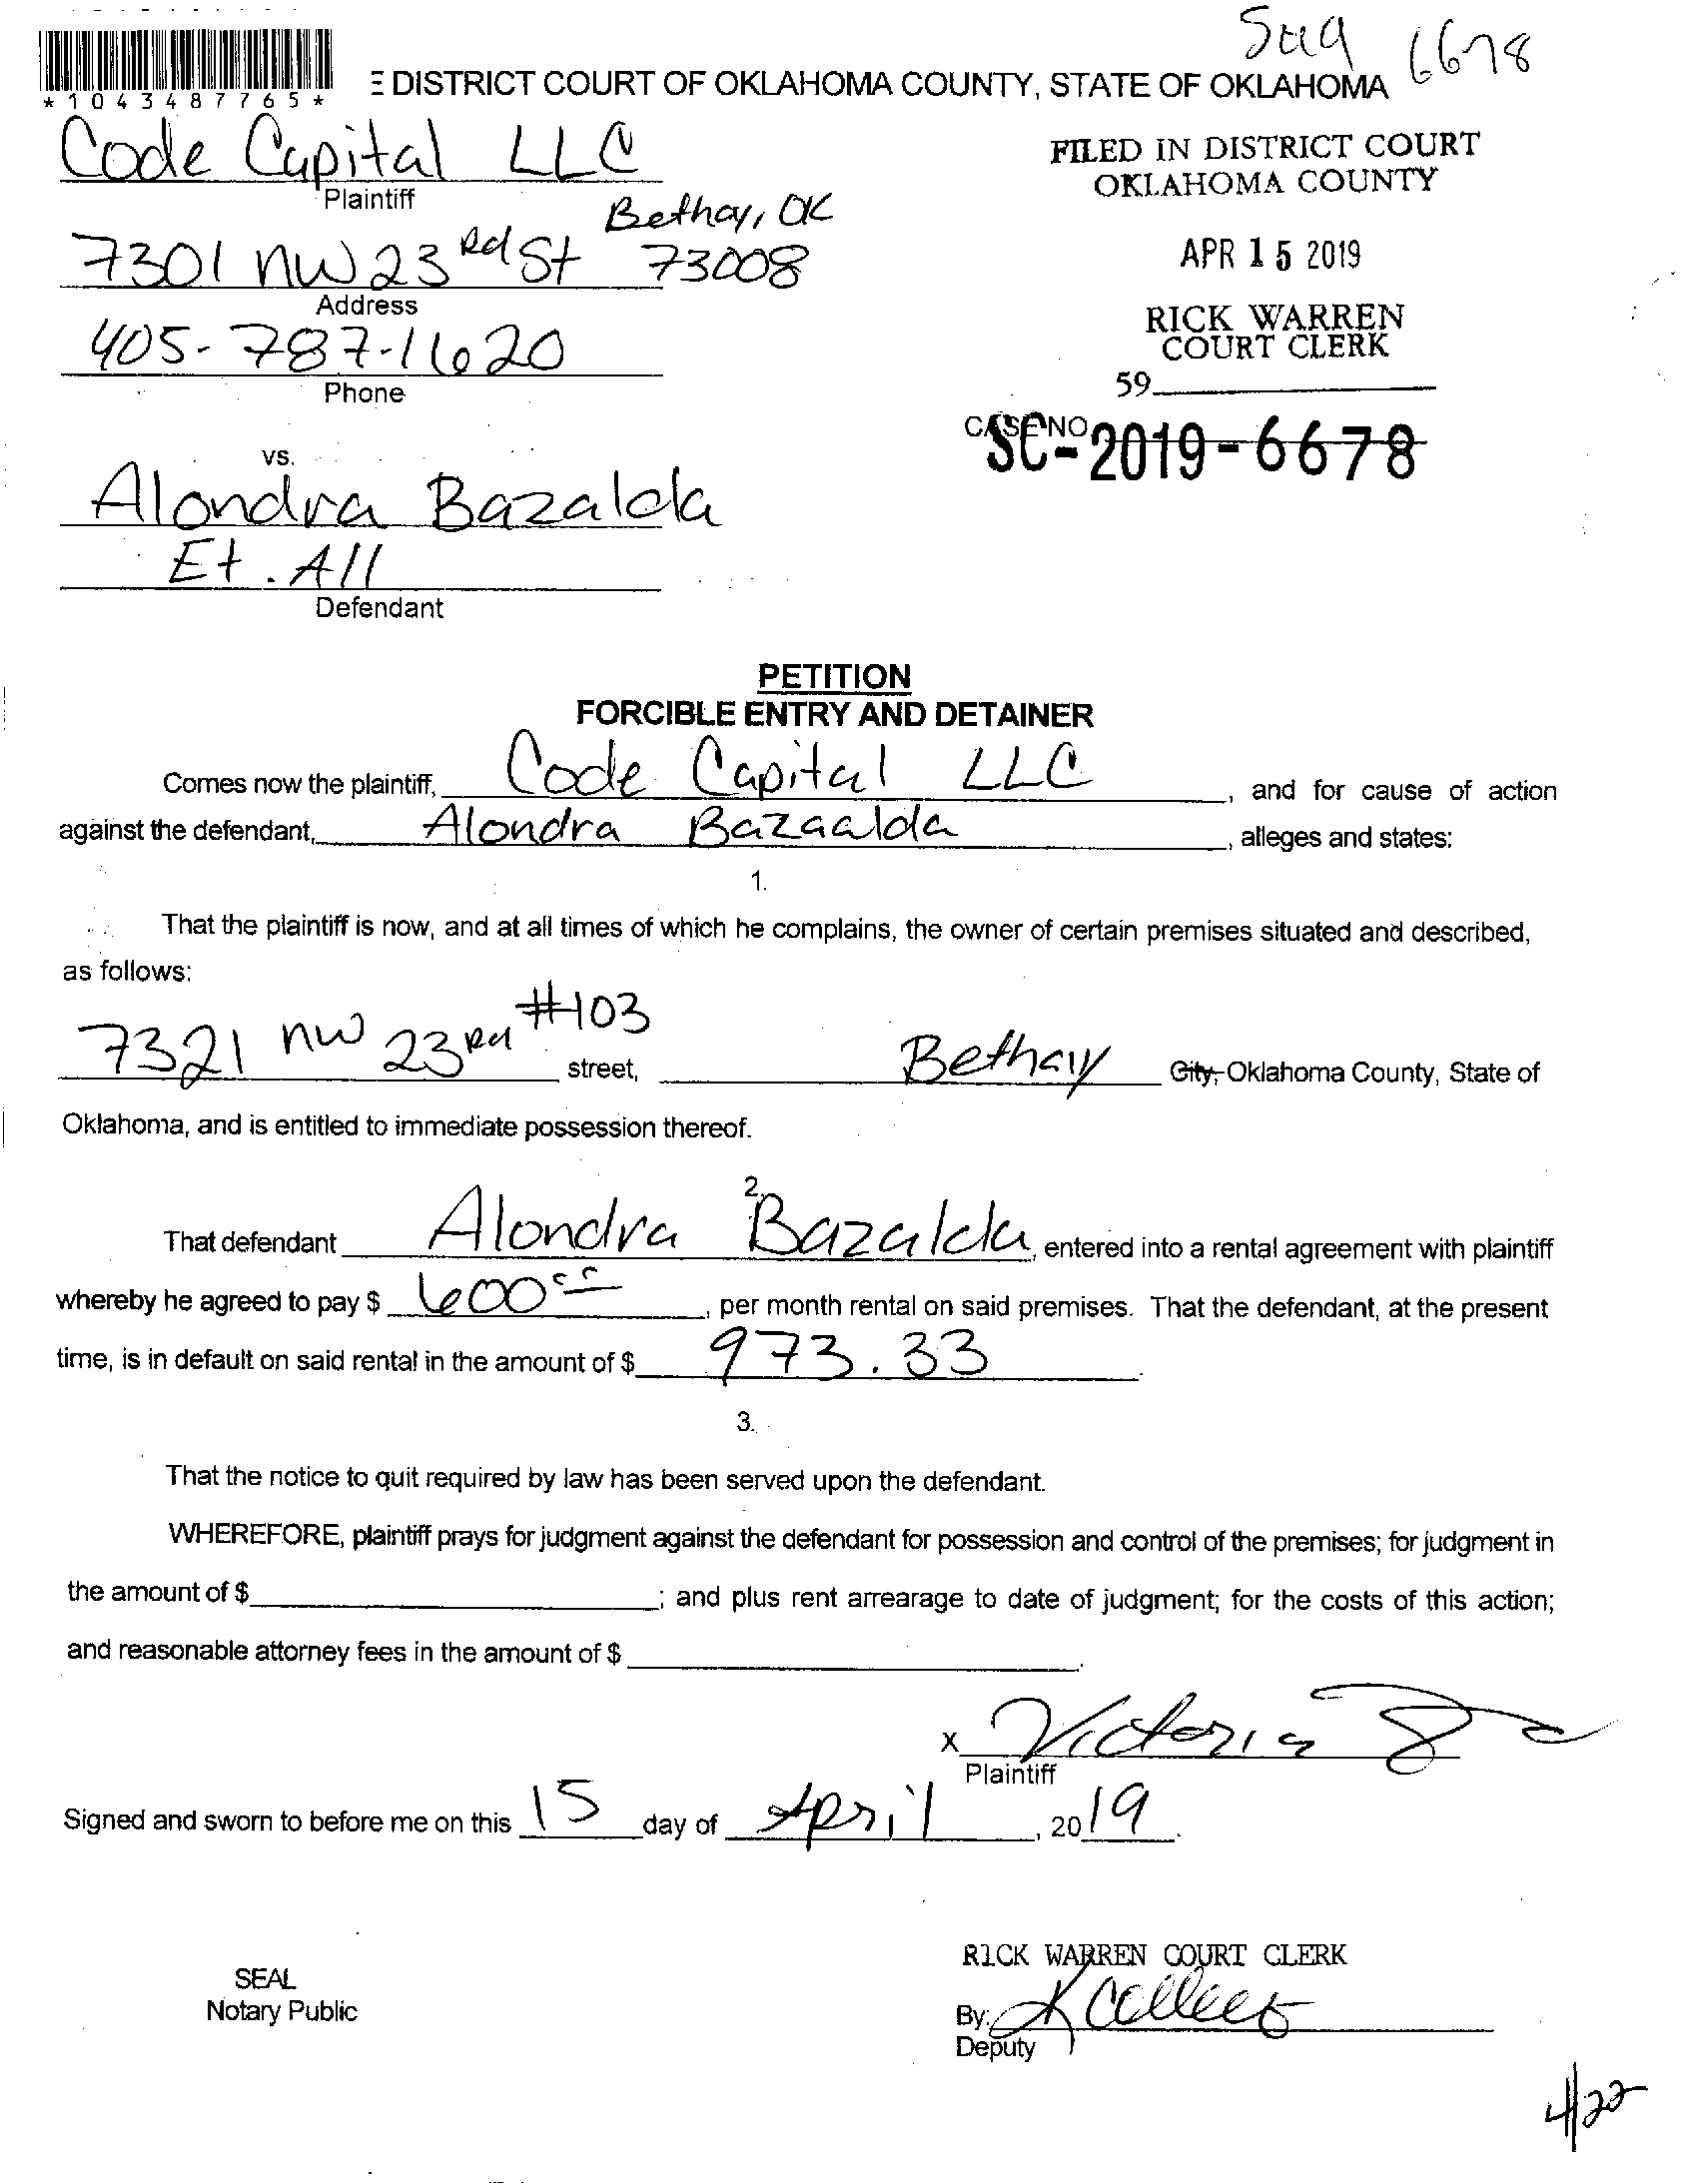 6678
DISTRICT COURT OF OKLAHOMA COUNTY, STATE OF OKLAHOMA
*1043487765*
Code Capital LLC
Plaintiff
Bethay, OK
7301 NW 23rd St 73008
Address
405-787-1620
Phone
FILED IN DISTRICT COURT
OKLAHOMA COUNTY
APR 15 2019
RICK WARREN
COURT CLERK
59
CASE NO
SC-2019-6678
vs.
Alondra Bazalda
Et. All
Defendant
PETITION
FORCIBLE ENTRY AND DETAINER
Comes now the plaintiff, Code Capital LLC, and for cause of action
against the defendant, Alondra Bazaalda, alleges and states:
1.
That the plaintiff is now, and at all times of which he complains, the owner of certain premises situated and described,
as follows:
7321 NW 23rd #103 street, Bethany City, Oklahoma County, State of
Oklahoma, and is entitled to immediate possession thereof.
2.
That defendant Alondra Bazalda, entered into a rental agreement with plaintiff
whereby he agreed to pay $ 600 00, per month rental on said premises. That the defendant, at the present
time, is in default on said rental in the amount of $ 973.33.
3.
That the notice to quit required by law has been served upon the defendant.
WHEREFORE, plaintiff prays for judgment against the defendant for possession and control of the premises; for judgment in
the amount of $ ; and plus rent arrearage to date of judgment; for the costs of this action;
and reasonable attorney fees in the amount of $ .
X Victoria
Plaintiff
Signed and sworn to before me on this 15 day of April, 2019.
SEAL
Notary Public
RICK WARREN COURT CLERK
By:
Deputy
4/22